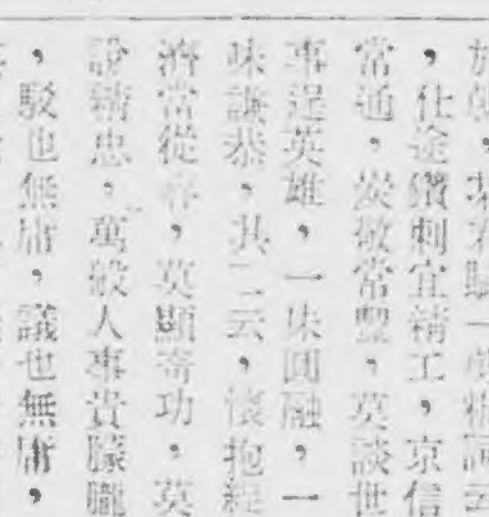 ,仕途鑽刺宜精工,京信
常通,炭敬常豐,莫談世
事逞英雄,一味圓融,一
味謙恭,其二云,懷抱經
濟當從容,莫顯奇功,莫
說精忠,萬般人事貴朦朧
,駁也無庸,議也無庸,